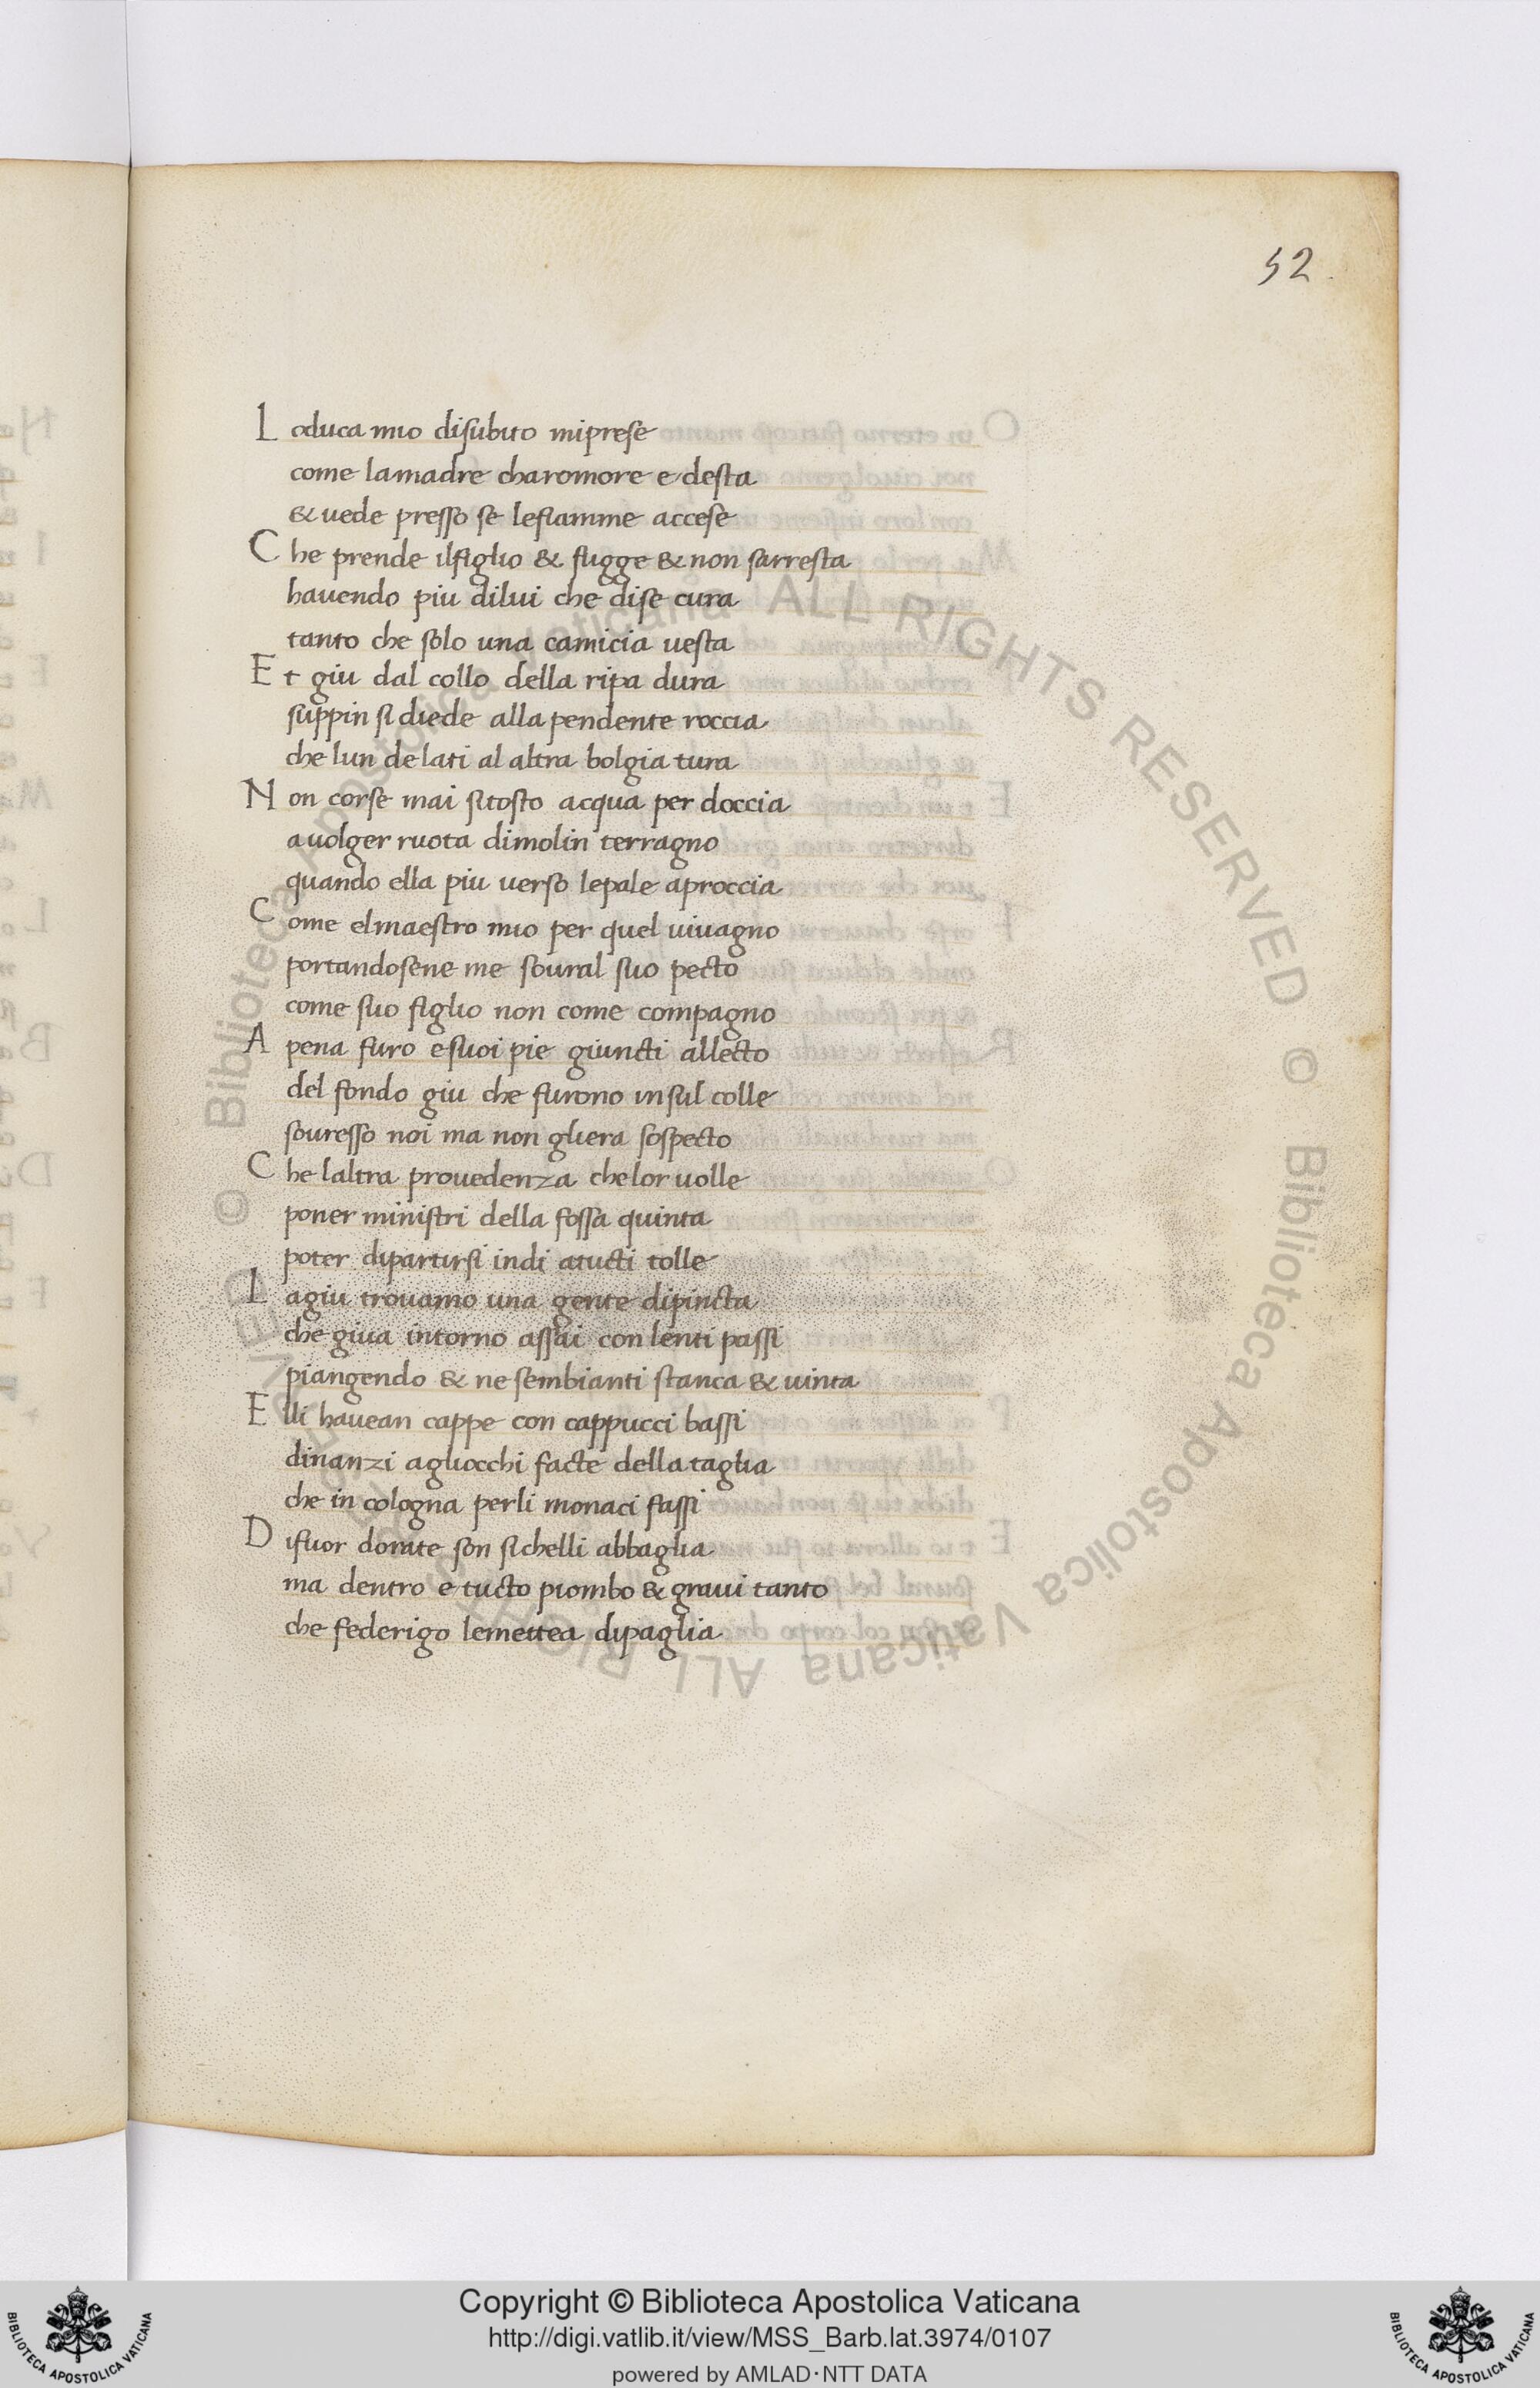 52
L oduca mio disubito miprese
come lamadre charomore e desta
& uede presso se lefiamme accese
C he prende ilfiglio & fugge & non sarresta
hauendo piu dilui che dise cura
tanto che solo una camicia uesta
E t giu dal collo della ripa dura
suppin si diede alla pendente roccia
che lun de lati al altra bolgia tura
N on corse mai sitosto acqua per doccia
auolger ruota dimolin terragno
quando ella piu uerso lepale aproccia
C ome elmaestro mio per quel uiuagno
portandosene me soural suo pecto
come suo figlio non come compagno
A pena furo esuoi pie giuncti allecto
del fondo giu che furono insul colle
souresso noi ma non gliera sospecto
C he laltra prouedenza chelor uolle
poner ministri della fossa quinta
poter dipartirsi indi atucti tolle
L agiu trouamo una gente dipincta
che giua intorno assai con lenti passi
piangendo & ne sembianti stanca & uinta
E lli hauean cappe con cappucci bassi
dinanzi agliocchi facte della taglia
che in cologna perli monaci fassi
D ifuor dorate son sichelli abbaglia
ma dentro e tucto piombo & graui tanto
che federigo lemettea dipaglia
© Biblioteca Apostolica Vaticana ALL RIGHTS RESERVED © Biblioteca Apostolica Vaticana ALL RIGHTS RESERVED
Copyright © Biblioteca Apostolica Vaticana
http://digi.vatlib.it/view/MSS_Barb.lat.3974/0107
powered by AMLAD·NTT DATA
BIBLIOTECA APOSTOLICA VATICANA
BIBLIOTECA APOSTOLICA VATICANA